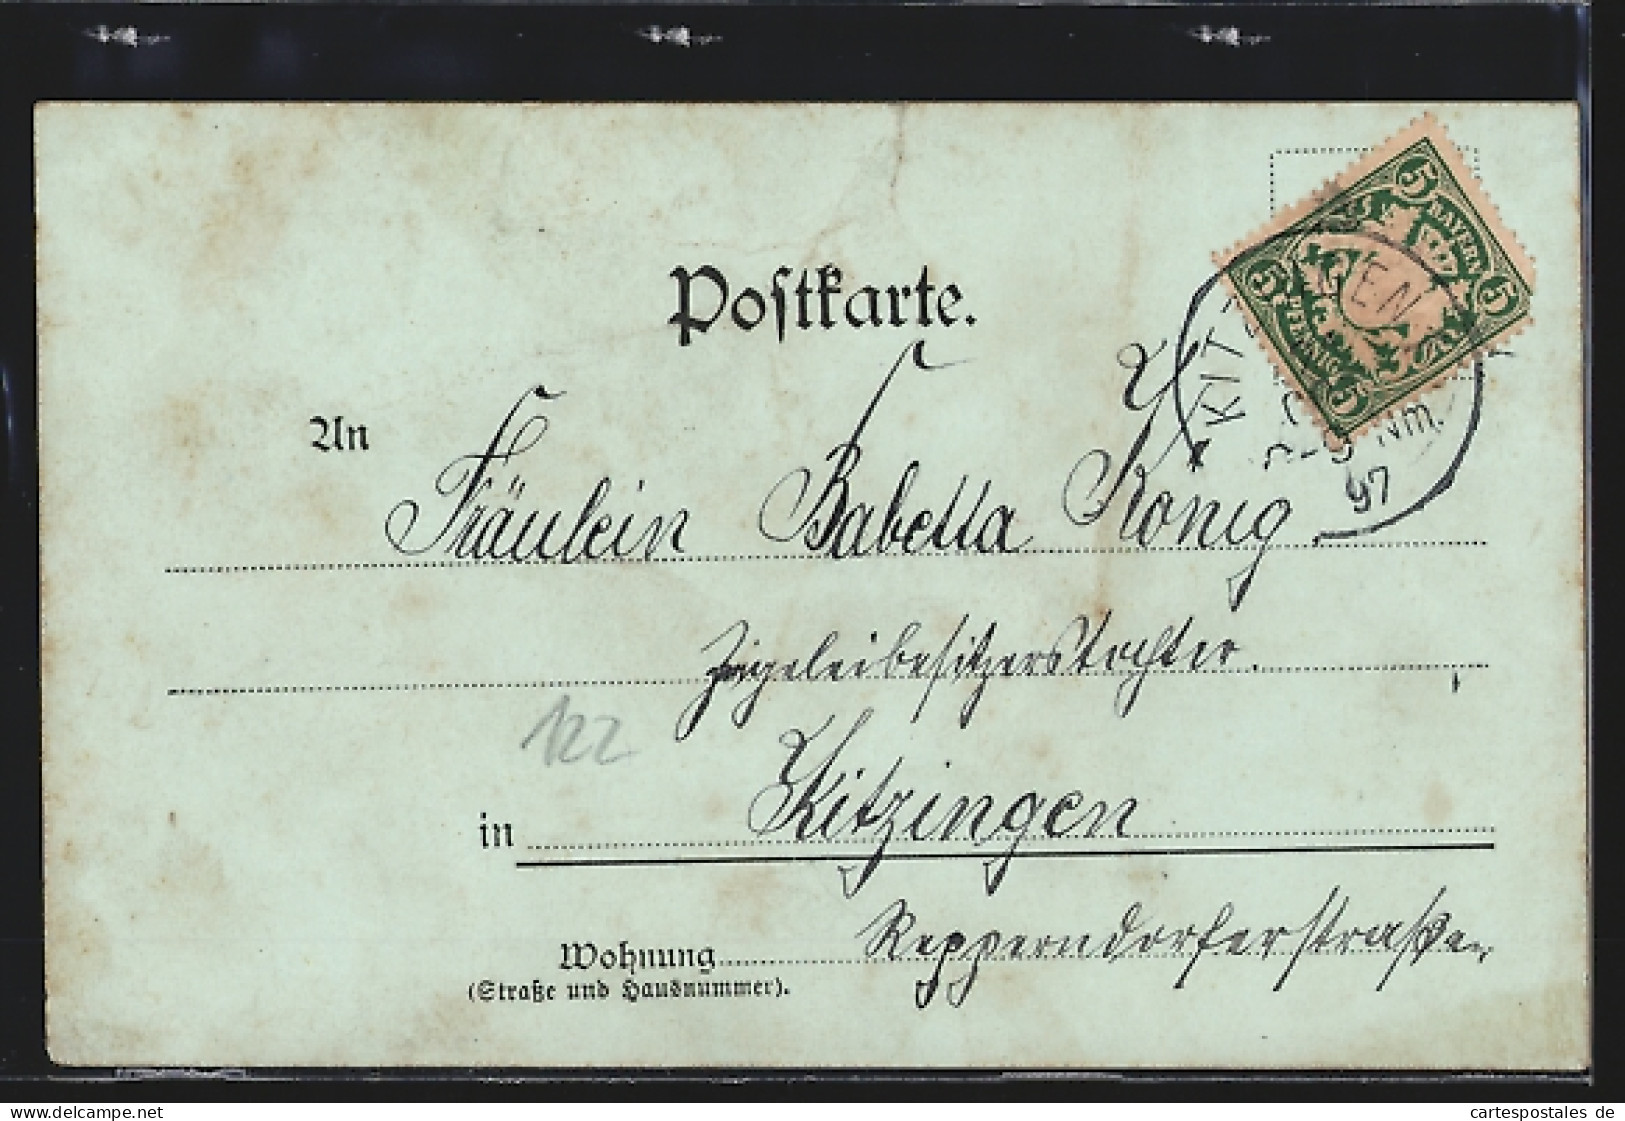 Postkarte.
5 BAYERN 5
5 PFENNIG 5
KITZINGEN
Nm.
97
An Fräulein Babetta König
Ziegeleibesitzerstochter.
122
in Kitzingen
Wohnung Repperndorferstraße
(Straße und Hausnummer).
delcampe.net
cartespostales de